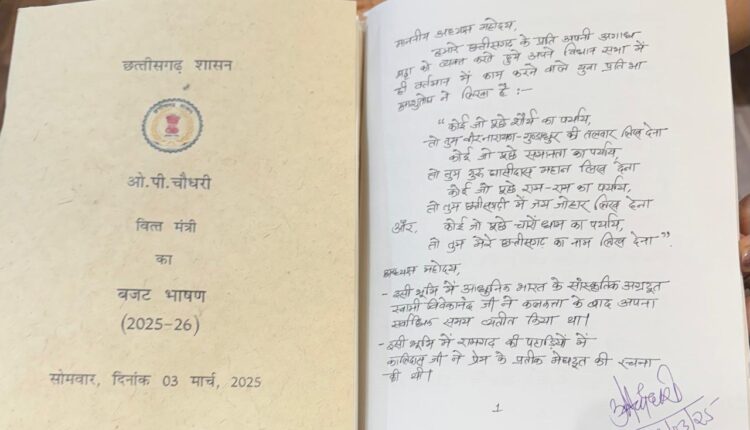 छत्तीसगढ़ शासन
ओ.पी.चौधरी
वित्त मंत्री
का
बजट भाषण
(2025-26)
सोमवार, दिनांक 03 मार्च, 2025
माननीय अध्यक्ष महोदय,
हमारे छत्तीसगढ़ के प्रति अपनी अगाध
श्रद्धा को व्यक्त करते हुये अपने विधान सभा में
ही वर्तमान में काम करने वाले युवा प्रतिभा
ने लिखा है :-
"कोई जो पूछे शौर्य का पर्याय,
तो तुम वीरनारायण-गुण्डाधुर की तलवार लिख देना
कोई जो पूछे समानता का पर्याय,
तो तुम गुरु घासीदास महान लिख देना
कोई जो पूछे राम-राम का पर्याय,
तो तुम छत्तीसगढ़ी में जय जोहार लिख देना
और, कोई जो पूछे चारों धाम का पर्याय,
तो तुम मेरे छत्तीसगढ़ का नाम लिख देना".
अध्यक्ष महोदय,
- इसी भूमि में आधुनिक भारत के सांस्कृतिक अग्रदूत
स्वामी विवेकानंद जी ने कलकत्ता के बाद अपना
सर्वाधिक समय व्यतीत किया था।
- इसी भूमि में रामगढ़ की पहाड़ियों में
कालिदास जी ने प्रेम के प्रतीक मेघदूत की रचना
की थी।
1